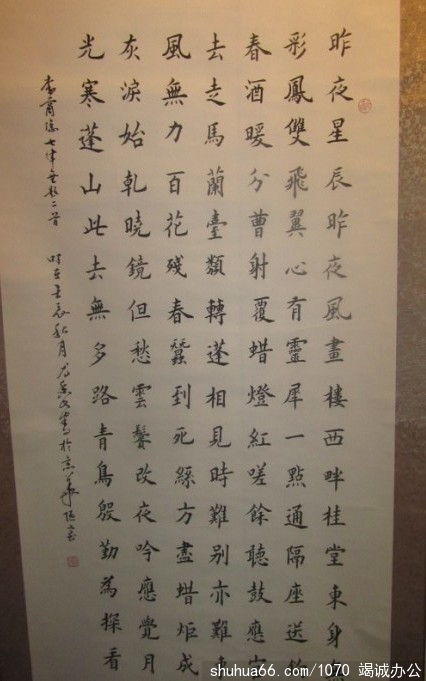 昨夜星辰昨夜風畫樓西畔桂堂東身無
彩鳳雙飛翼心有靈犀一點通隔座送鈎
春酒暖分曹射覆蜡燈紅嗟餘聽鼓應官
去走馬蘭臺類轉蓬相見時難别亦難東
風無力百花殘春蠶到死絲方盡蜡炬成
灰淚始乾曉鏡但愁雲鬢改夜吟應覺月
光寒蓬山此去無多路青鳥殷勤為探看
李商隱七律無題二首 時在壬辰秋月 書於京華
shuhua66.com/1070 竭诚办公